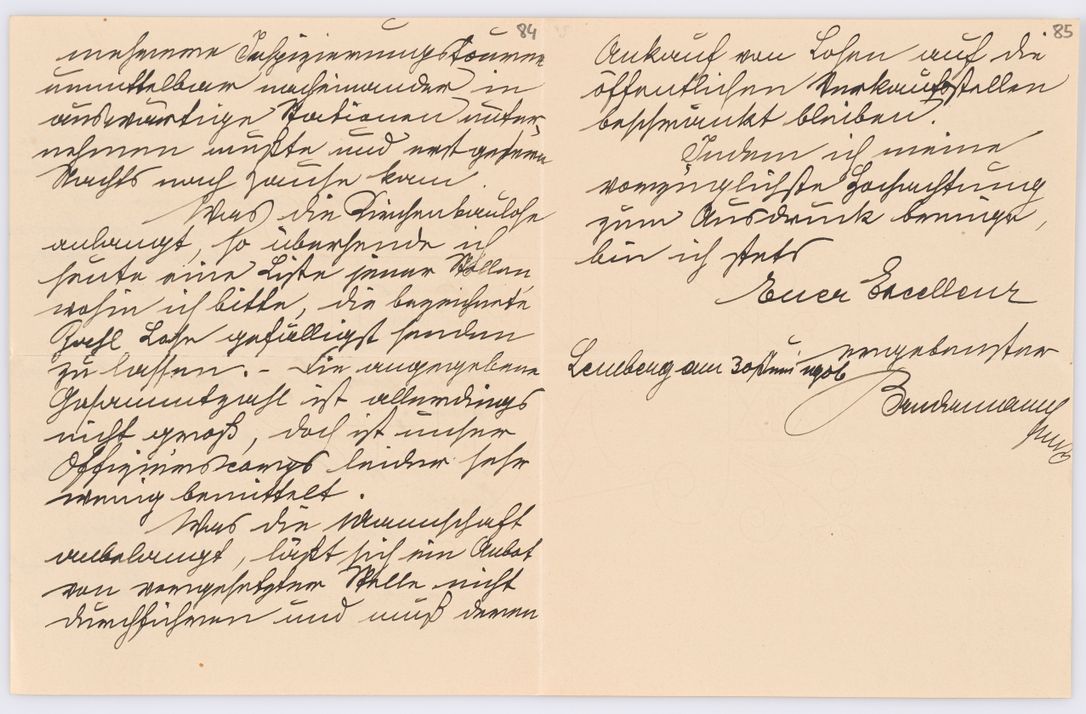 84
mehrere Inspizierungstouren
unmittelbar nacheinander in
auswärtige Stationen unter-
nehmen mußte und erst gestern
Nachts nach Hause kam.
Was die Kirchenbaulose
anlangt, so übersende ich
heute eine Liste jener Stellen,
wohin ich bitte, die bezeichnete
Zahl Lose gefälligst senden
zu lassen. – Die angegebene
Gesammtzahl ist allerdings
nicht groß, doch ist unser
Offizierscorps leider sehr
wenig bemittelt.
Was die Mannschaft
anbelangt, läßt sich ein Anbot
von vorgesetzter Stelle nicht
durchführen und muß deren
85
Ankauf von Losen auf die
öffentlichen Verkaufsstellen
beschränkt bleiben.
Indem ich meine
vorzüglichste Hochachtung
zum Ausdruck bringe,
bin ich stets
Euer Excellenz
ergebenster
Lemberg am 30 Juni 1906